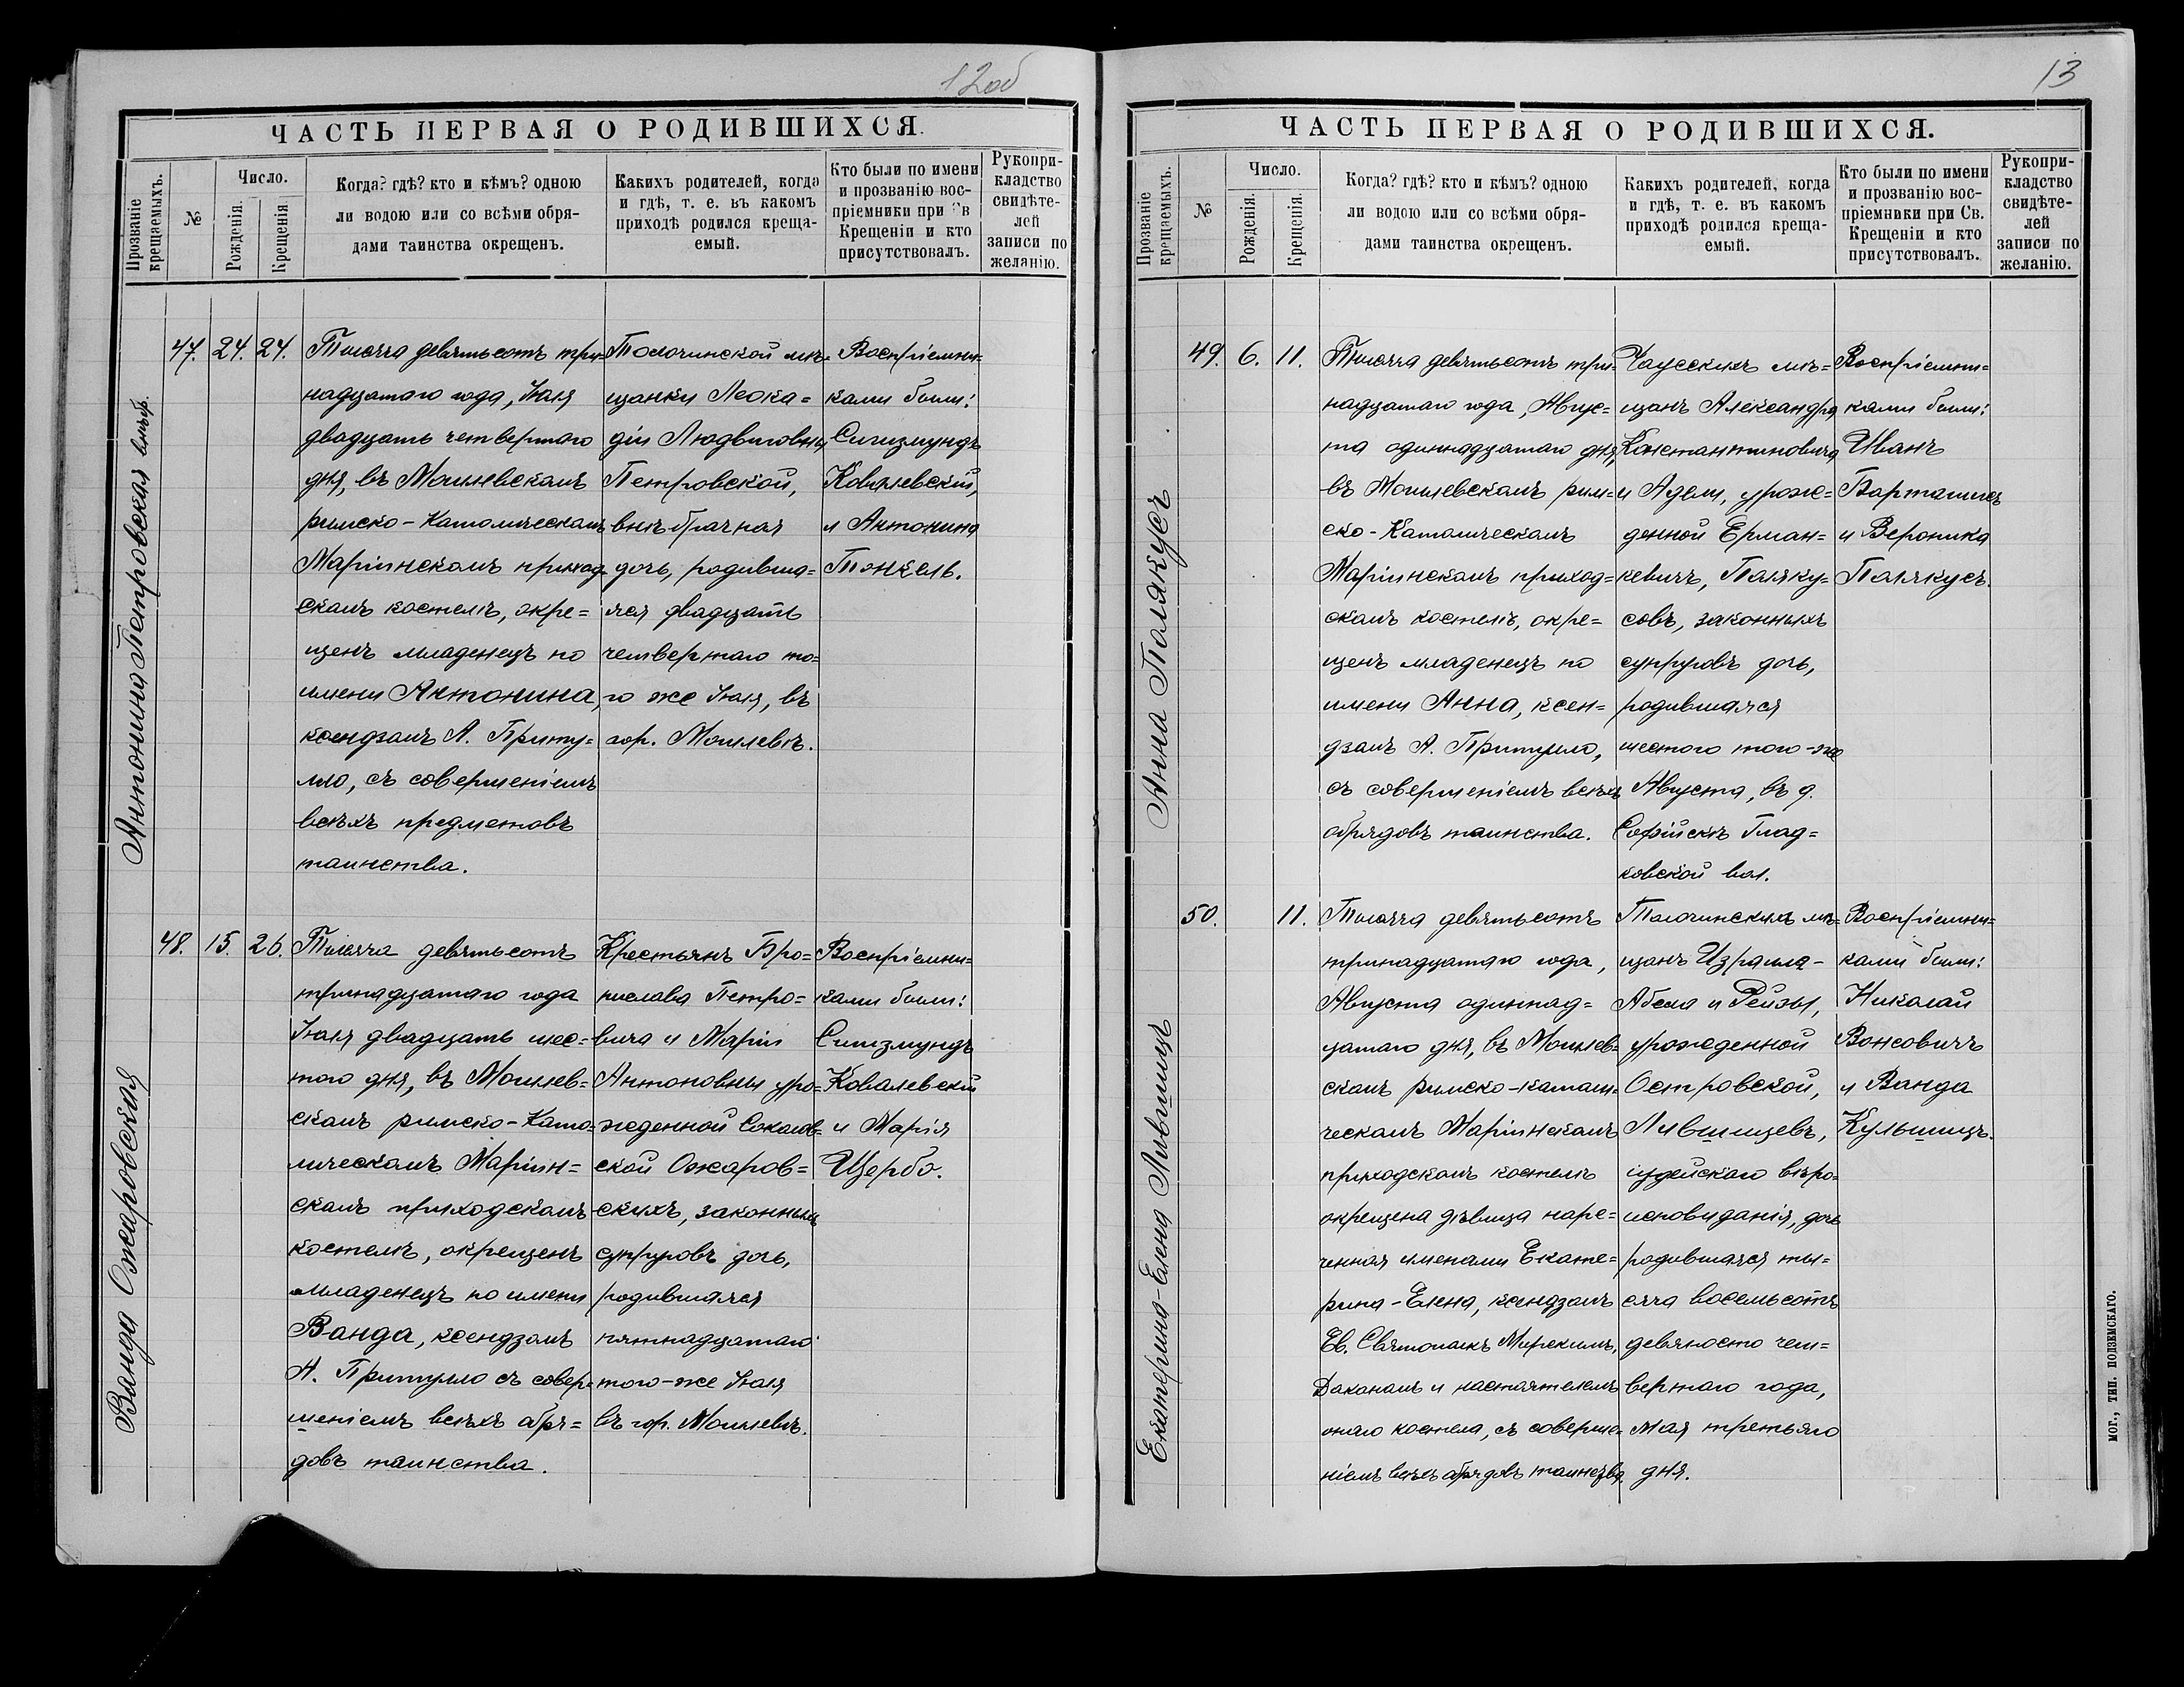 12об
ЧАСТЬ ПЕРВАЯ О РОДИВШИХСЯ.
Прозваніе крещаемыхъ.
№
Число.
Рожденія.
Крещенія.
Когда? гдѣ? кто и кѣмъ? одною
ли водою или со всѣми обря-
дами таинства окрещенъ.
Какихъ родителей, когда
и гдѣ, т. е. въ какомъ
приходѣ родился креща-
емый.
Кто были по имени
и прозванію вос-
пріемники при Св
Крещеніи и кто
присутствовалъ.
Рукопри-
кладство
свидѣте-
лей
записи по
желанію.
Антонина Петровская внѣбр.
47.
24.
24.
Тысяча девятьсотъ три-
надцатаго года, Іюля
двадцать четвертаго
дня, въ Могилевскомъ
римско-Католическомъ
Маріинскомъ приход-
скомъ костелѣ, окре=
щенъ младенецъ по
имени Антонина,
ксендзомъ А. Приту=
лло, съ совершеніемъ
всѣхъ предметовъ
таинства.
Толочинской мѣ-
щанки Леока=
діи Людвиговны
Петровской,
внѣбрачная
дочь, родивша=
яся двадцать
четвертаго то=
го же Іюля, въ
гор. Могилевѣ.
Воспріемни=
ками были:
Сигизмундъ
Ковалевскій,
и Антонина
Тонкель.
Ванда Ожаровская
48.
15.
26.
Тысяча девятьсотъ
тринадцатаго года
Іюля двадцать шес=
того дня, въ Могилев=
скомъ римско-Като=
лическомъ Маріин=
скомъ приходскомъ
костелѣ, окрещенъ
младенецъ по имени
Ванда, ксендзомъ
А. Притулло съ совер=
шеніемъ всѣхъ обря=
довъ таинства.
Крестьянъ Бро=
нислава Петро=
вича и Маріи
Антоновны уро=
жденной Соколов=
ской Ожаров=
скихъ, законныхъ
супруговъ дочь,
родившаяся
пятнадцатаго
того-же Іюля
въ гор. Могилевѣ.
Воспріемни=
ками были:
Сигизмундъ
Ковалевскій
и Марія
Щербо.
13
ЧАСТЬ ПЕРВАЯ О РОДИВШИХСЯ.
Прозваніе крещаемыхъ.
№
Число.
Рожденія.
Крещенія.
Когда? гдѣ? кто и кѣмъ? одною
ли водою или со всѣми обря-
дами таинства окрещенъ.
Какихъ родителей, когда
и гдѣ, т. е. въ какомъ
приходѣ родился креща-
емый.
Кто были по имени
и прозванію вос-
пріемники при Св.
Крещеніи и кто
присутствовалъ.
Рукопри-
кладство
свидѣте-
лей
записи по
желанію.
Анна Полякусъ
49.
6.
11.
Тысяча девятьсотъ три-
надцатаго года, Авгус=
та одиннадцатаго дня,
въ Могилевскомъ рим=
ско-Католическомъ
Маріинскомъ приход=
скомъ костелѣ, окре=
щенъ младенецъ по
имени Анна, ксен=
дзомъ А. Притулло,
съ совершеніемъ всѣхъ
обрядовъ таинства.
Чаусскихъ мѣ=
щанъ Александра
Константиновича
и Адели, урож=
денной Ерман=
кевичъ, Поляку=
совъ, законныхъ
супруговъ дочь,
родившаяся
шестого того-же
Августа, въ д.
Софійскѣ Глад=
ковской вол.
Воспріемни=
ками были:
Иванъ
Барташевъ
и Вероника
Полякусъ.
Екатерина-Елена Лившицъ
50.
11.
Тысяча девятьсотъ
тринадцатаго года,
Августа одиннад=
цатаго дня, въ Могилев=
скомъ римско-католи=
ческомъ Маріинскомъ
приходскомъ костелѣ
окрещена дѣвица наре=
ченная именами Екате=
рина-Елена, ксендзомъ
Ев. Святополкъ Мирскимъ,
Деканомъ и настоятелемъ
онаго костела, съ соверше=
ніемъ всѣхъ обрядовъ таинства.
Толочинскихъ мѣ=
щанъ Израиля-
Абеля и Рейзы,
урожденной
Островской,
Лившицевъ,
іудейскаго вѣро=
исповѣданія, дочь
родившаяся ты=
сяча восемьсотъ
девяносто чет=
вертаго года,
мая третьяго
дня.
Воспріемни=
ками были:
Николай
Вонсовичъ
и Ванда
Кульшицъ.
МОГ., ТИП. ПОДЗЕМСКАГО.